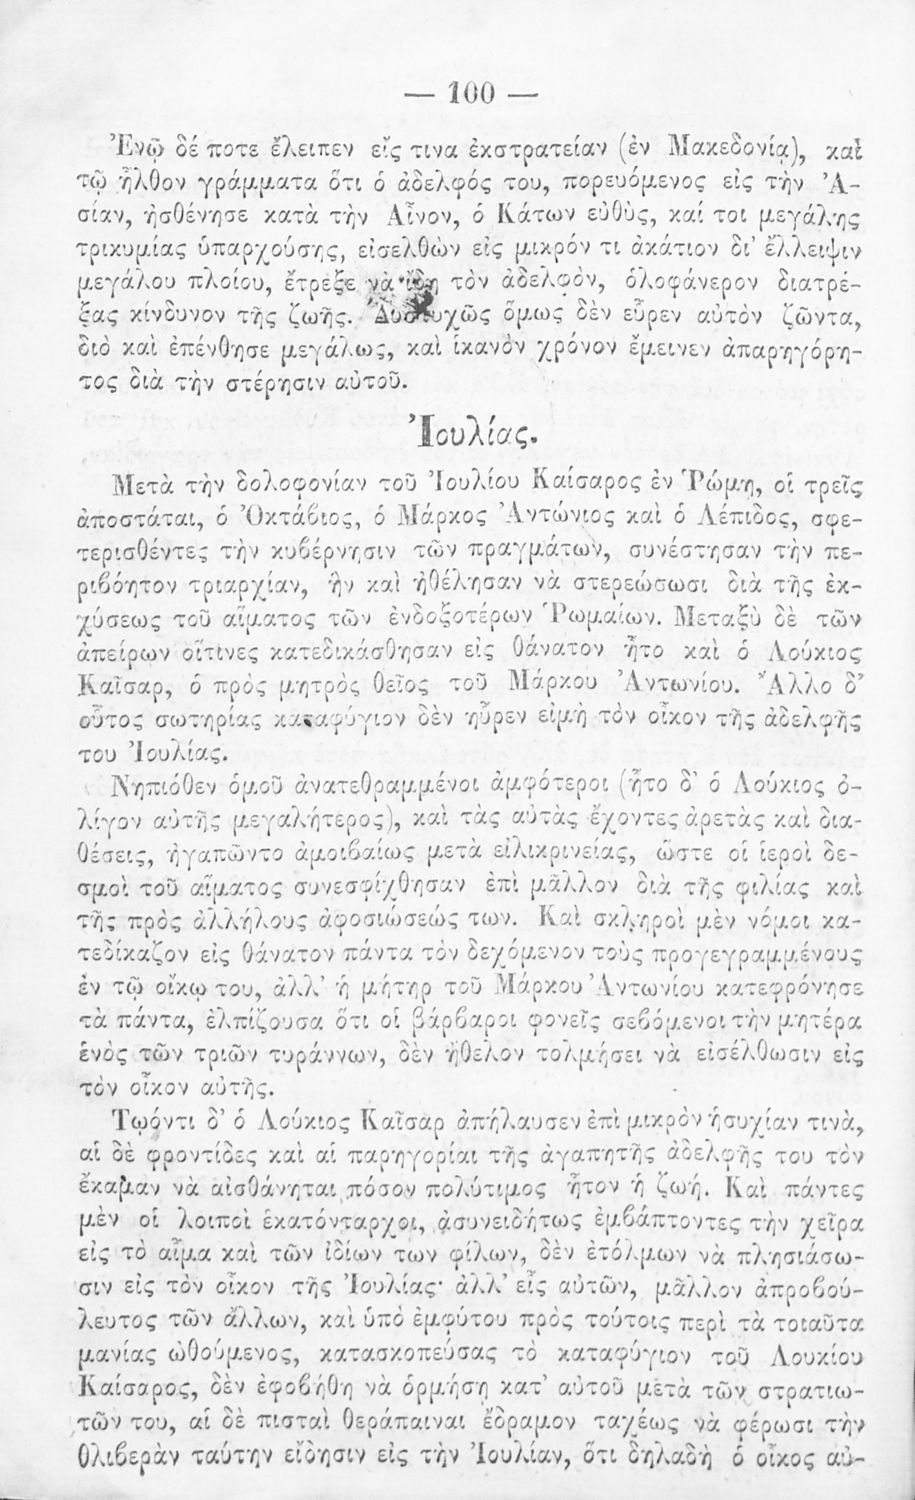 — 100 —
Ἐνῷ δέ ποτε ἔλειπεν εἴς τινα ἐκστρατείαν (ἐν Μακεδονίᾳ), καὶ
τῷ ἦλθον γράμματα ὅτι ὁ ἀδελφός του, πορευόμενος εἰς τὴν Ἀ-
σίαν, ἠσθένησε κατὰ τὴν Αἶνον, ὁ Κάτων εὐθὺς, καί τοι μεγάλης
τρικυμίας ὑπαρχούσης, εἰσελθὼν εἰς μικρόν τι ἀκάτιον δι’ ἔλλειψιν
μεγάλου πλοίου, ἔτρεξε νὰ ἴδῃ τὸν ἀδελφὸν, ὁλοφάνερον διατρέ-
ξας κίνδυνον τῆς ζωῆς. Δυστυχῶς ὅμως δὲν εὗρεν αὐτὸν ζῶντα,
διὸ καὶ ἐπένθησε μεγάλως, καὶ ἱκανὸν χρόνον ἔμεινεν ἀπαρηγόρη-
τος διὰ τὴν στέρησιν αὐτοῦ.
Ἰουλίας.
Μετὰ τὴν δολοφονίαν τοῦ Ἰουλίου Καίσαρος ἐν Ῥώμῃ, οἱ τρεῖς
ἀποστάται, ὁ Ὀκτάβιος, ὁ Μάρκος Ἀντώνιος καὶ ὁ Λέπιδος, σφε-
τερισθέντες τὴν κυβέρνησιν τῶν πραγμάτων, συνέστησαν τὴν πε-
ριβόητον τριαρχίαν, ἣν καὶ ἠθέλησαν νὰ στερεώσωσι διὰ τῆς ἐκ-
χύσεως τοῦ αἵματος τῶν ἐνδοξοτέρων Ῥωμαίων. Μεταξὺ δὲ τῶν
ἀπείρων οἵτινες κατεδικάσθησαν εἰς θάνατον ἦτο καὶ ὁ Λούκιος
Καῖσαρ, ὁ πρὸς μητρὸς θεῖος τοῦ Μάρκου Ἀντωνίου. Ἄλλο δ’
οὗτος σωτηρίας καταφύγιον δὲν ηὗρεν εἰμὴ τὸν οἶκον τῆς ἀδελφῆς
του Ἰουλίας.
Νηπιόθεν ὁμοῦ ἀνατεθραμμένοι ἀμφότεροι (ἦτο δ’ ὁ Λούκιος ὀ-
λίγον αὐτῆς μεγαλήτερος), καὶ τὰς αὐτὰς ἔχοντες ἀρετὰς καὶ δια-
θέσεις, ἠγαπῶντο ἀμοιβαίως μετὰ εἰλικρινείας, ὥστε οἱ ἱεροὶ δε-
σμοὶ τοῦ αἵματος συνεσφίχθησαν ἐπὶ μᾶλλον διὰ τῆς φιλίας καὶ
τῆς πρὸς ἀλλήλους ἀφοσιώσεώς των. Καὶ σκληροὶ μὲν νόμοι κα-
τεδίκαζον εἰς θάνατον πάντα τὸν δεχόμενον τοὺς προγεγραμμένους
ἐν τῷ οἴκῳ του, ἀλλ’ ἡ μήτηρ τοῦ Μάρκου Ἀντωνίου κατεφρόνησε
τὰ πάντα, ἐλπίζουσα ὅτι οἱ βάρβαροι φονεῖς σεβόμενοι τὴν μητέρα
ἑνὸς τῶν τριῶν τυράννων, δὲν ἤθελον τολμήσει νὰ εἰσέλθωσιν εἰς
τὸν οἶκον αὐτῆς.
Τῳόντι δ’ ὁ Λούκιος Καῖσαρ ἀπήλαυσεν ἐπὶ μικρὸν ἡσυχίαν τινὰ,
αἱ δὲ φροντίδες καὶ αἱ παρηγορίαι τῆς ἀγαπητῆς ἀδελφῆς του τὸν
ἔκαμαν νὰ αἰσθάνηται πόσον πολύτιμος ἦτον ἡ ζωή. Καὶ πάντες
μὲν οἱ λοιποὶ ἑκατόνταρχοι, ἀσυνειδήτως ἐμβάπτοντες τὴν χεῖρα
εἰς τὸ αἷμα καὶ τῶν ἰδίων των φίλων, δὲν ἐτόλμων νὰ πλησιάσω-
σιν εἰς τὸν οἶκον τῆς Ἰουλίας· ἀλλ’ εἷς αὐτῶν, μᾶλλον ἀπροβού-
λευτος τῶν ἄλλων, καὶ ὑπὸ ἐμφύτου πρὸς τούτοις περὶ τὰ τοιαῦτα
μανίας ὠθούμενος, κατασκοπεύσας τὸ καταφύγιον τοῦ Λουκίου
Καίσαρος, δὲν ἐφοβήθη νὰ ὁρμήσῃ κατ’ αὐτοῦ μετὰ τῶν στρατιω-
τῶν του, αἱ δὲ πισταὶ θεράπαιναι ἔδραμον ταχέως νὰ φέρωσι τὴν
θλιβερὰν ταύτην εἴδησιν εἰς τὴν Ἰουλίαν, ὅτι δηλαδὴ ὁ οἶκος αὐ-